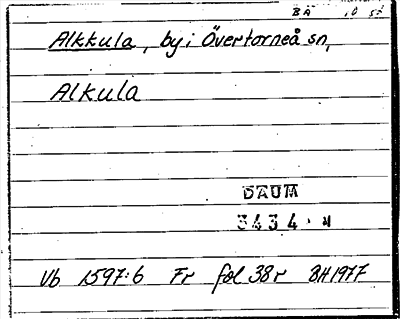 BÄ 10 52
Alkkula, by i Övertorneå sn,
Alkula
DAUM
3434
Vb 1597:6 Fr fol 38r BH 1977